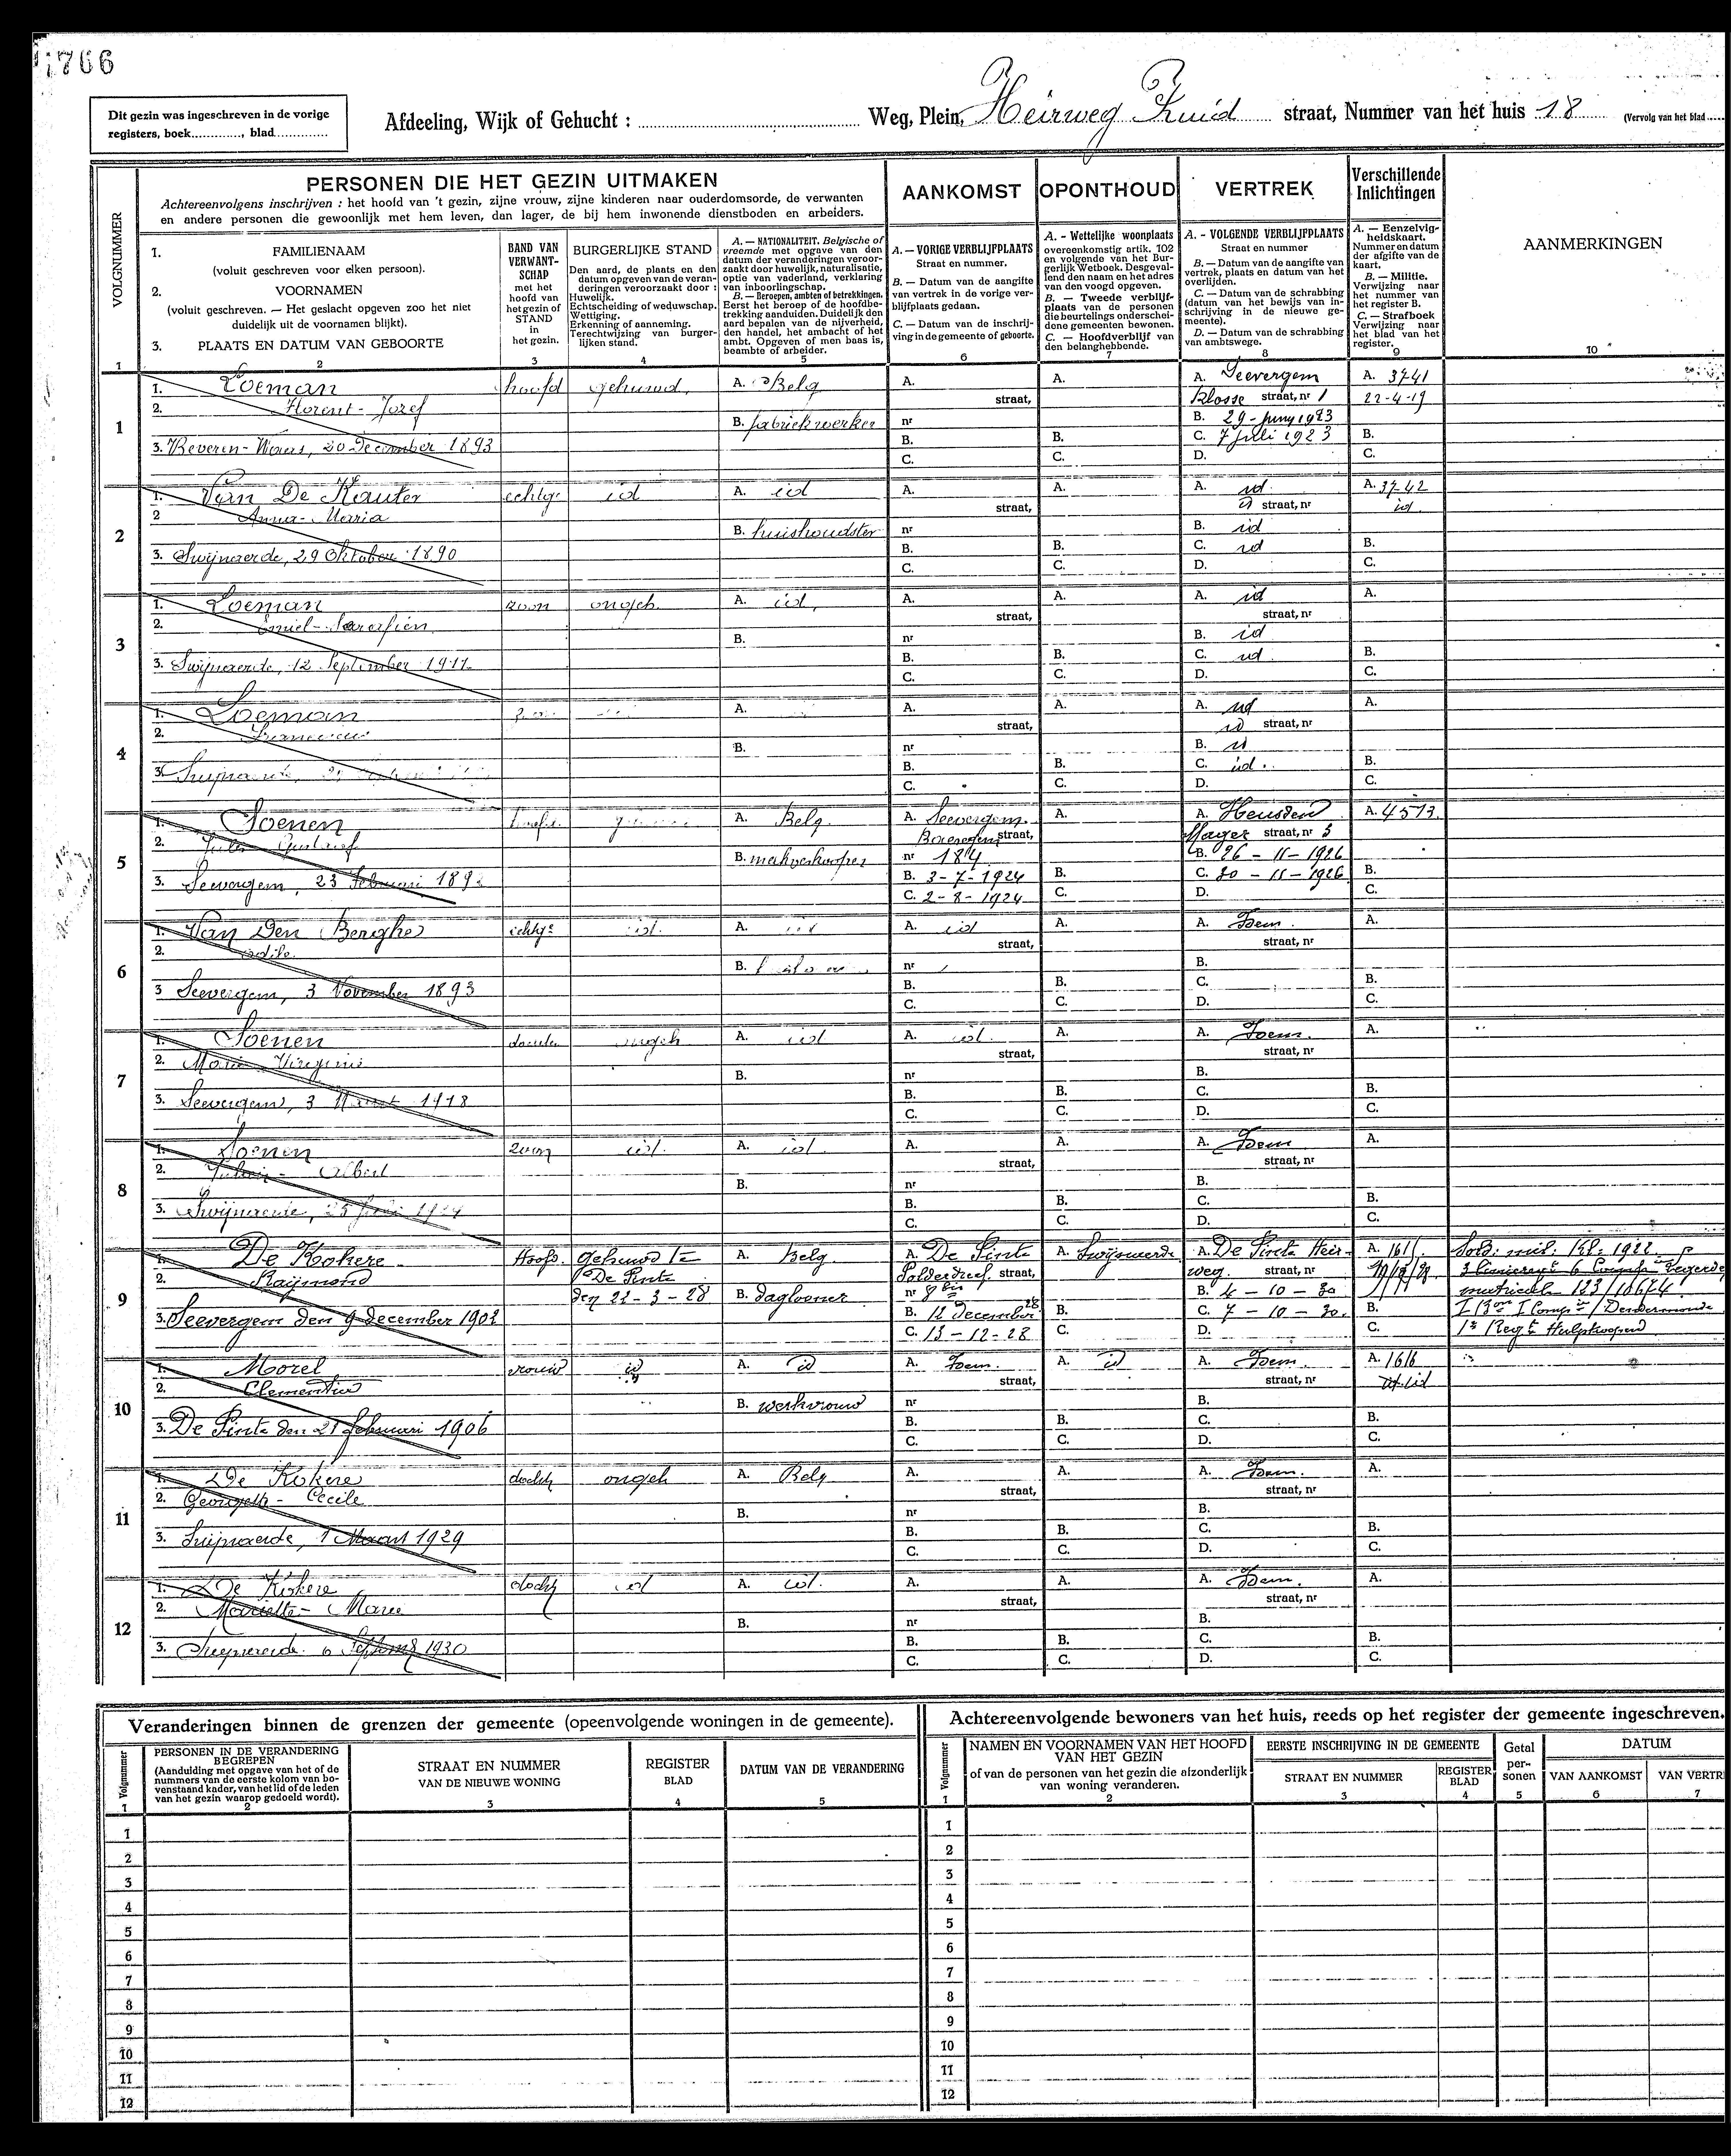 1766
Dit gezin was ingeschreven in de vorige
registers, boek............, blad.............
Afdeeling, Wijk of Gehucht : Weg, Plein, Heirweg Zuid straat, Nummer van het huis 18 (Vervolg van het blad
VOLGNUMMER
PERSONEN DIE HET GEZIN UITMAKEN
Achtereenvolgens inschrijven : het hoofd van 't gezin, zijne vrouw, zijne kinderen naar ouderdomsorde, de verwanten
en andere personen die gewoonlijk met hem leven, dan lager, de bij hem inwonende dienstboden en arbeiders.
AANKOMST
OPONTHOUD
VERTREK
Verschillende
Inlichtingen
1. FAMILIENAAM
(voluit geschreven voor elken persoon).
2. VOORNAMEN
(voluit geschreven. — Het geslacht opgeven zoo het niet
duidelijk uit de voornamen blijkt).
3. PLAATS EN DATUM VAN GEBOORTE
BAND VAN
VERWANT-
SCHAP
met het
hoofd van
het gezin of
STAND
in
het gezin.
BURGERLIJKE STAND
Den aard, de plaats en den
datum opgeven van de veran-
deringen veroorzaakt door :
Huwelijk.
Echtscheiding of weduwschap.
Wettiging.
Erkenning of aanneming.
Terechtwijzing van burger-
lijken stand.
A. — NATIONALITEIT. Belgische of
vreemde met opgave van den
datum der veranderingen veroor-
zaakt door huwelijk, naturalisatie,
optie van vaderland, verklaring
van inboorlingschap.
B. — Beroepen, ambten of betrekkingen.
Eerst het beroep of de hoofdbe-
trekking aanduiden. Duidelijk den
aard bepalen van de nijverheid,
den handel, het ambacht of het
ambt. Opgeven of men baas is,
beambte of arbeider.
A. — VORIGE VERBLIJFPLAATS
Straat en nummer.
B. — Datum van de aangifte
van vertrek in de vorige ver-
blijfplaats gedaan.
C. — Datum van de inschrij-
ving in de gemeente of geboorte.
A. - Wettelijke woonplaats
overeenkomstig artik. 102
en volgende van het Bur-
gerlijk Wetboek. Desgeval-
lend den naam en het adres
van den voogd opgeven.
B. — Tweede verblijf-
plaats van de personen
die beurtelings onderschei-
dene gemeenten bewonen.
C. — Hoofdverblijf van
den belanghebbende.
A. - VOLGENDE VERBLIJFPLAATS
Straat en nummer
B. — Datum van de aangifte van
vertrek, plaats en datum van het
overlijden.
C. — Datum van de schrabbing
(datum van het bewijs van in-
schrijving in de nieuwe ge-
meente).
D. — Datum van de schrabbing
van ambtswege.
A. — Eenzelvig-
heidskaart.
Nummer en datum
der afgifte van de
kaart.
B. — Militie.
Verwijzing naar
het nummer van
het register B.
C. — Strafboek
Verwijzing naar
het blad van het
register.
AANMERKINGEN
1 2 3 4 5 6 7 8 9 10
1
1. Loeman hoofd gehuwd, A. Belg A. A. A. Seevergem A. 3741
2. Florent - Jozef straat, Klosse straat, nr 1 22-4-19
B. fabriekwerker nr B. 29 - Juny 1923
3. Beveren-Waes, 20 December 1893 B. B. C. 7 Juli 1923 B.
C. C. D. C.
2
1. Van De Kauter echtge id A. id A. A. A. id A. 3742
2 Anna-Maria straat, id straat, nr id.
B. huishoudster nr B. id
3. Swijnaerde, 29 Oktober 1890 B. B. C. id B.
C. C. D. C.
3
1. Loeman zoon ongeh. A. id, A. A. A. id A.
2. Emiel- straat, straat, nr
B. nr B. id
3. Swijnaerde, 12 September 1911 B. B. C. id B.
C. C. D. C.
4
1. Loeman A. A. A. A. id A.
2. straat, id straat, nr
B. nr B. id
3. B. B. C. id. B.
C. C. D. C.
5
1. Soenen A. Belg. A. Seevergem A. A. Heusden A. 4573
2. Jules Gustaaf straat, straat, nr 3
B. melkverkooper nr 184 B. 26 - 11 - 1926
3. Seevergem, 23 Februari B. 3-7-1924 B. C. 30 - 11 - 1926 B.
C. 2-8-1924 C. D. C.
6
1. Van Den Berghe echtge id. A. id A. id A. A. Idem. A.
2. straat, straat, nr
B. nr B.
3 Seevergem, 3 November 1893 B. B. C. B.
C. C. D. C.
7
1. Soenen ongeh A. id A. id. A. A. Idem. A.
2. Maria Virginie straat, straat, nr
B. nr B.
3. Seevergem, 3 Maart 1918 B. B. C. B.
C. C. D. C.
8
1. Soenen Zoon id. A. id. A. A. A. Idem A.
2. Albert straat, straat, nr
B. nr B.
3. Swijnaerde, 25 B. B. C. B.
C. C. D. C.
9
1. De Kokere Hoofd. Gehuwd te A. Belg. A. De Pinte A. Swijnaerde A. De Pinte Heir- A. 1611
2. Raijmond De Pinte Polderdreef straat, weg. straat, nr
den 22-3-28 B. daglooner nr 8 bis B. 4 - 10 - 30
3. Seevergem den 9 December 1902 B. 12 December 28 B. C. 7 - 10 - 30. B.
C. 13-12-28 C. D. C.
Sold: mil: Kl: 1922
10
1. Morel vrouw id A. id A. Idem. A. id A. Idem. A. 1616
2. Clementia straat, straat, nr id
B. werkvrouw nr B.
3. De Pinte den 21 februari 1906 B. B. C. B.
C. C. D. C.
11
1. De Kokere docht ongeh A. Belg A. A. A. Idem. A.
2. Georgette - Cecile straat, straat, nr
B. nr B.
3. Swijnaerde, 1 Maart 1929 B. B. C. B.
C. C. D. C.
12
1. De Kokere docht id A. id. A. A. A. Idem. A.
2. Mariette - Marie straat, straat, nr
B. nr B.
3. Swijnaerde 6 1930 B. B. C. B.
C. C. D. C.
Veranderingen binnen de grenzen der gemeente (opeenvolgende woningen in de gemeente).
Volgnummer
PERSONEN IN DE VERANDERING
BEGREPEN
(Aanduiding met opgave van het of de
nummers van de eerste kolom van bo-
venstaand kader, van het lid of de leden
van het gezin waarop gedoeld wordt).
STRAAT EN NUMMER
VAN DE NIEUWE WONING
REGISTER
BLAD
DATUM VAN DE VERANDERING
1 2 3 4 5
1
2
3
4
5
6
7
8
9
10
11
12
Achtereenvolgende bewoners van het huis, reeds op het register der gemeente ingeschreven.
Volgnummer
NAMEN EN VOORNAMEN VAN HET HOOFD
VAN HET GEZIN
of van de personen van het gezin die afzonderlijk
van woning veranderen.
EERSTE INSCHRIJVING IN DE GEMEENTE
STRAAT EN NUMMER
REGISTER
BLAD
Getal
per-
sonen
DATUM
VAN AANKOMST
VAN VERTR
1 2 3 4 5 6 7
1
2
3
4
5
6
7
8
9
10
11
12